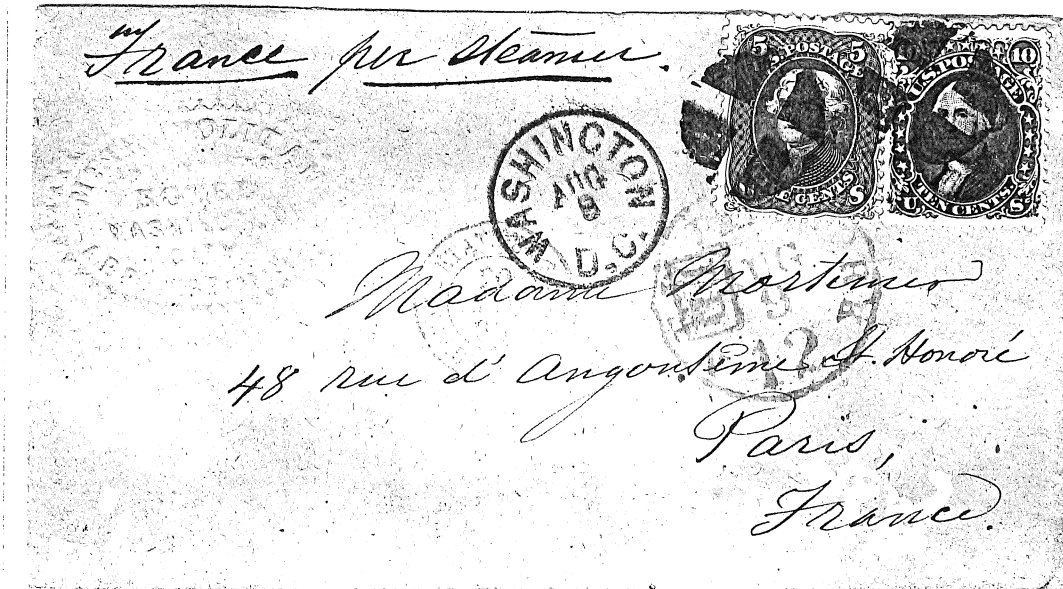 France per steamer.
5 U.S. POSTAGE 5
CENTS
10 10
U.S. POSTAGE
U TEN CENTS S
WASHINGTON
AUG
8
D.C.
9
12
Madame Mortimer
48 rue d' Angoulême St. Honoré
Paris,
France.